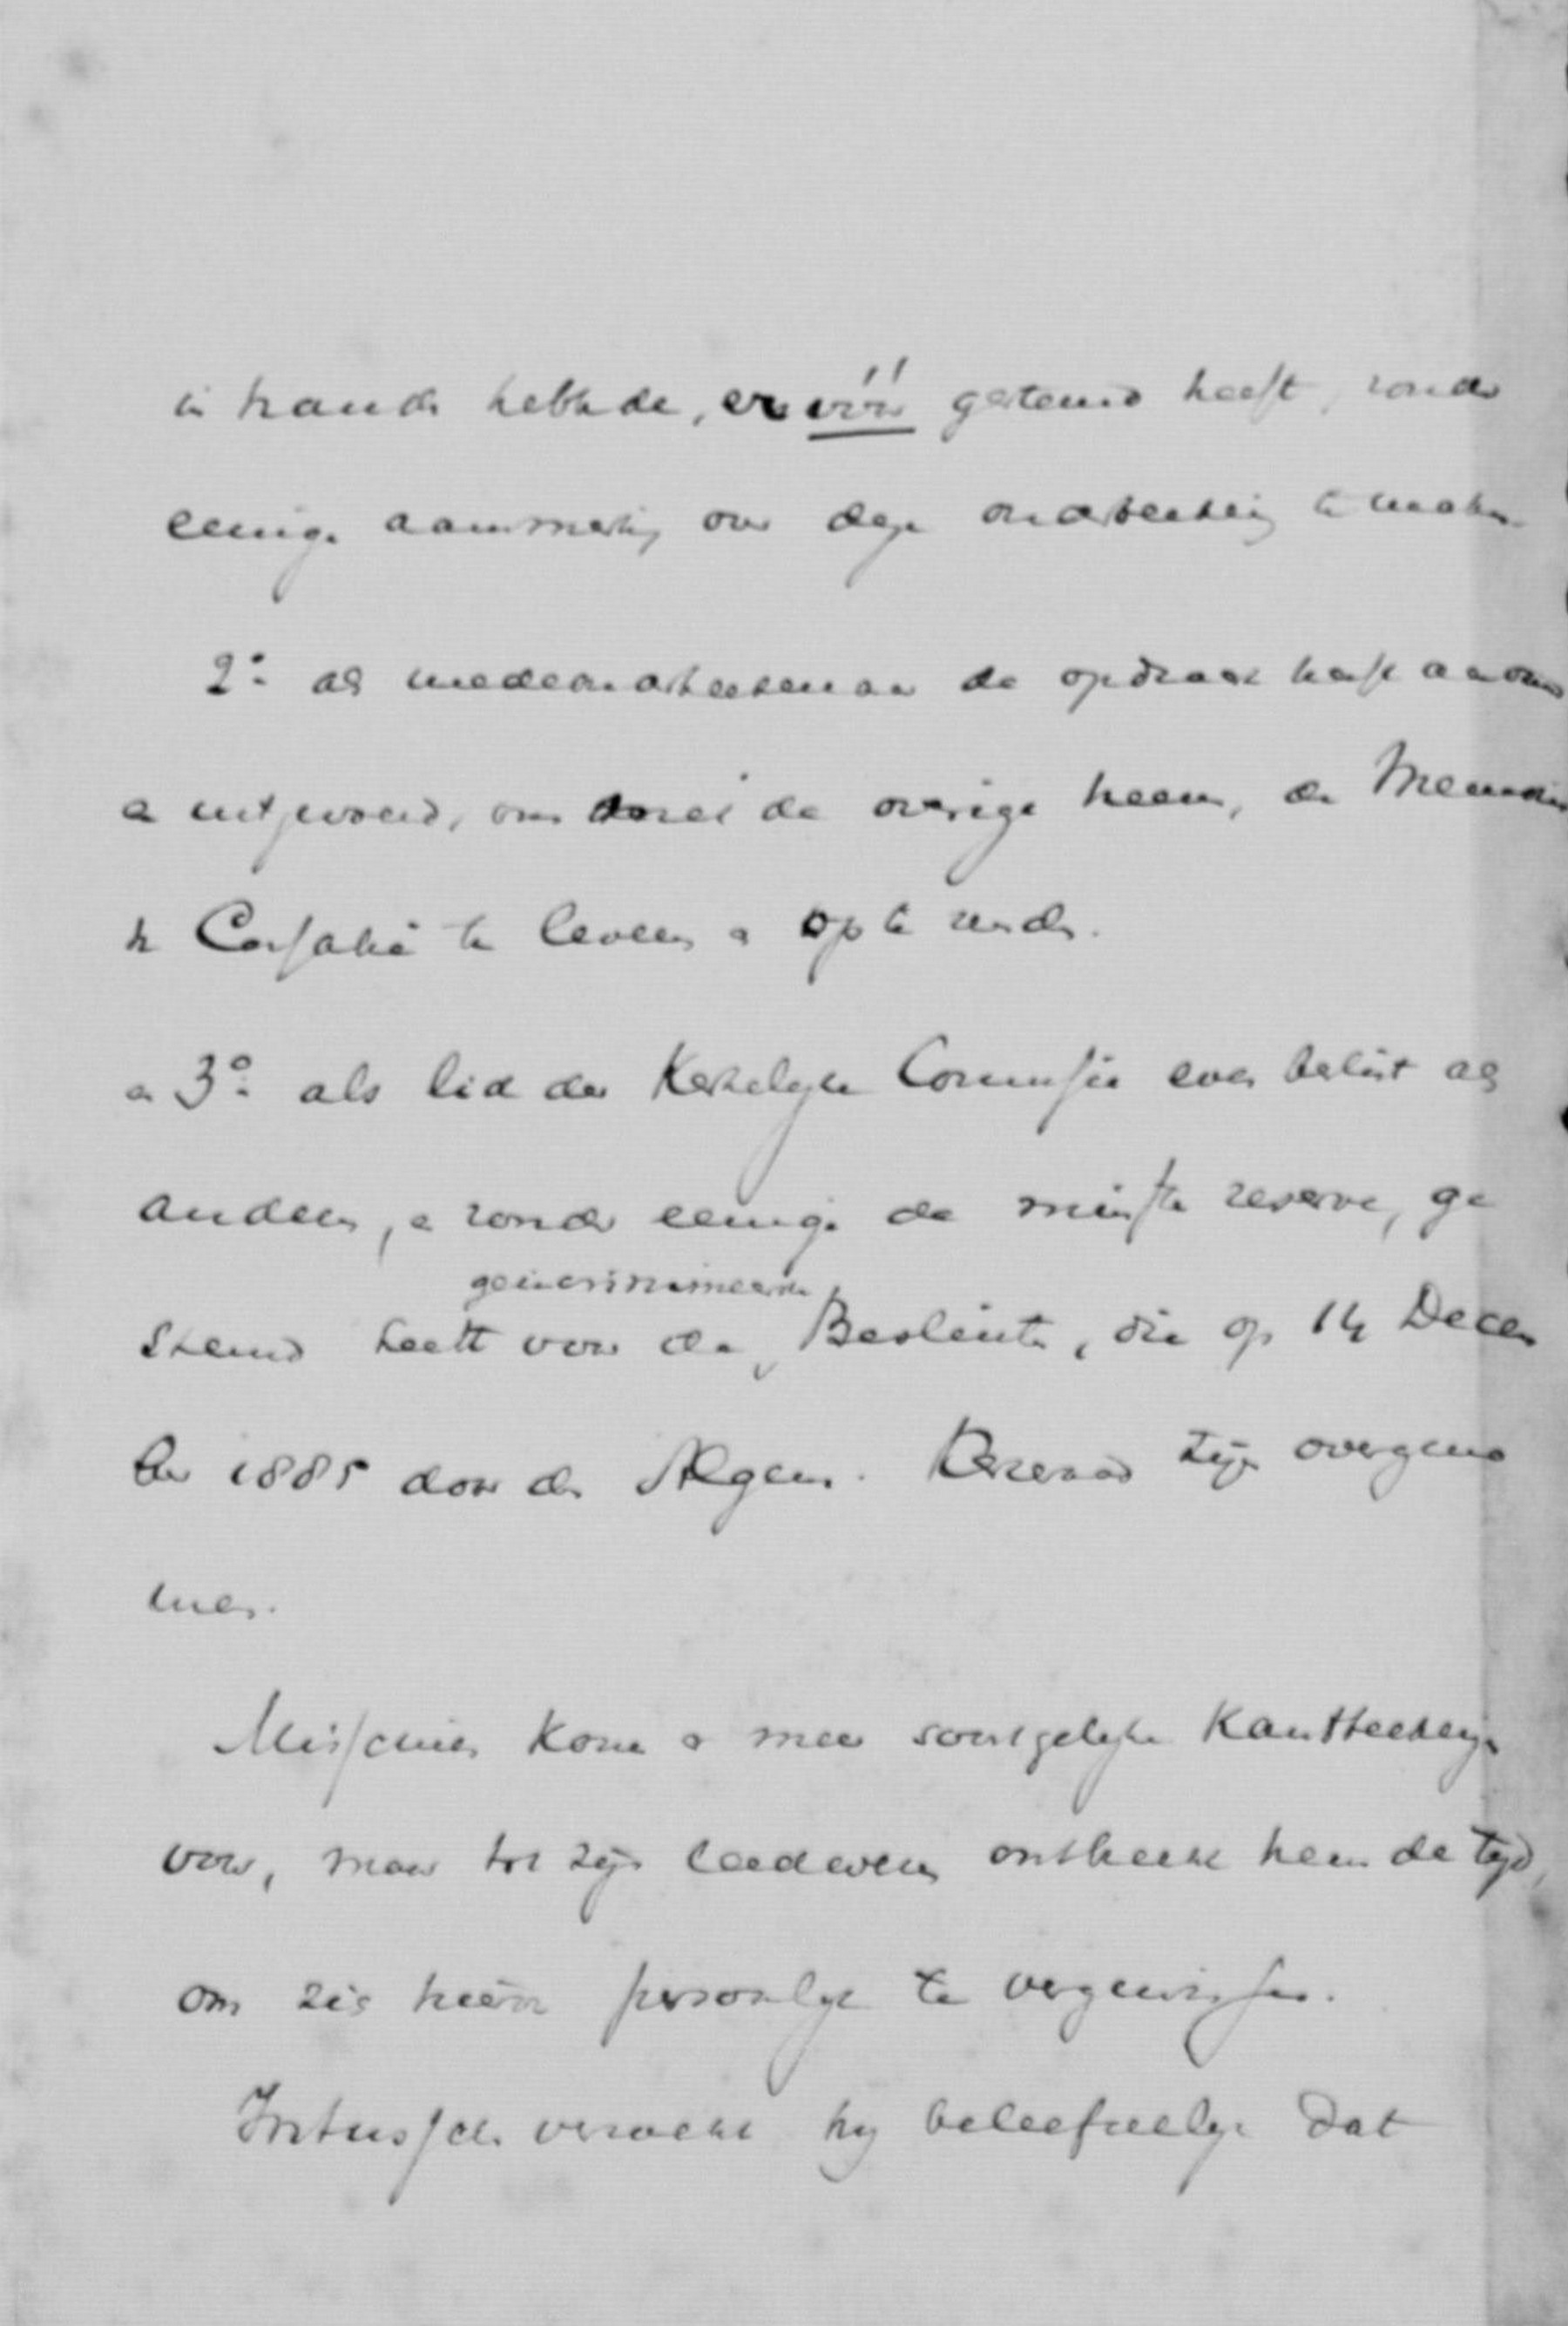 in handen hebbende, er vóór gestemd heeft, zonder
eenige aanmerking over deze onderteekening te maken.
2º. als medeonderteekenaar de opdracht heeft aanvaard
en uitgevoerd, om de overige heeren, de Memorie
te te leveren en op te zenden.
en 3º. als lid der Kerkelyke Commissie even beslist als
anderen, en zonder eenige de minste reserve, ge
geincrimineerde
stemd heeft voor de Besluiten, die op 14 Decem
ber 1885 door den Algem. Kerkeraad zijn overgeno
men.
Misschien komen er meer soortgelyke Kantteekeningen
voor, maar tot zijn leedwezen ontbreekt hem de tyd,
om zich hierin persoonlyk te vergewissen.
Intusschen verzoekt hy beleefdelyk dat